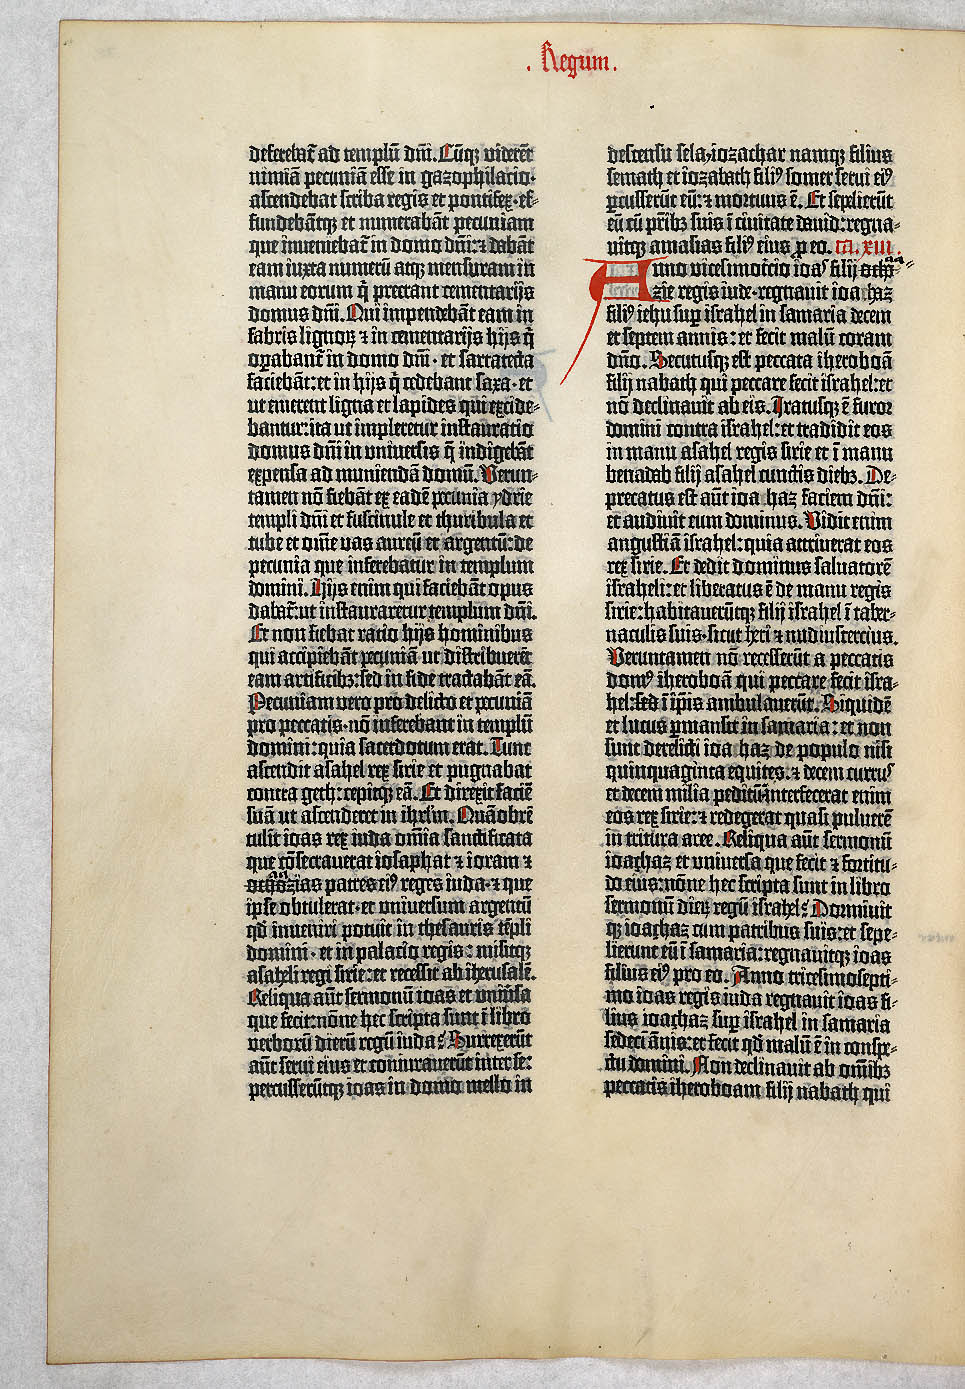 . Regum .
deferebat̄ ad templū dn̄i. Cūq₃ viderēt
nimiā pecuniā esse in gazophilacio·
ascendebat scriba regis et pontifex·ef-
fundebātq₃ et numerabāt pecuniam
que inueniebat̄ in domo dn̄i:⁊ dabāt
eam iuxta numerū atq₃ mensuram in
manu eorum q̄ preerant cementarijs
domus dn̄i. Qui impendebāt eam in
fabris lignoꝝ ⁊ in cementarijs hijs q̄
oꝑabant̄ in domo dn̄i · et sartatecta
faciebāt:et in hijs q̄ cedebant saxa·et
ut emerent ligna et lapides qui excide-
bantur:ita ut impleretur instauratio
domus dn̄i in uniuersis q̄ indigebāt
expensa ad muniendā domū. Verun-
tamen nō fiebāt ex eadē pecunia ydrie
templi dn̄i et fuscinule et thuribula et
tube et om̄e uas aureū et argentū:de
pecunia que inferebatur in templum
domini. Hijs enim qui faciebāt opus
dabat̄:ut instauraretur templum dn̄i.
Et non fiebat ratio hijs hominibus
qui accipiebāt pecuniā ut distribuerēt
eam artificib₃:sed in fide tractabāt eā.
Pecuniam vero pro delicto et pecuniā
pro peccatis·nō inferebant in templū
domini:quia sacerdotum erat. Tunc
ascendit asahel rex sirie et pugnabat
contra geth:cepitq₃ eā. Et direxit faciē
suā ut ascenderet in ihrl̄m. Quāobrē
tulit ioas rex iuda om̄ia sanctificata
que cōsecrauerat iosaphat ⁊ ioram ⁊
ochozias patres eiꝰ reges iuda·⁊ que
ipse obtulerat·et uniuersum argentū
qd̄ inueniri potuit in thesauris tēpli
domini · et in palacio regis: misitq₃
asaheli regi sirie:et recessit ab iherusalē.
Reliqua aūt sermonū ioas et uniūsa
que fecit:nōne hec scripta sunt ī libro
verborū dierū regū iuda? Surrexerūt
aūt serui eius et coniurauerūt inter se:
percusserūtq₃ ioas in domo mello in
descensu sela·iozachar namq₃ filius
semath et iozabath filiꝰ somer serui eiꝰ
ꝑcusserūt eū:⁊ mortuus ē. Et sepelierūt
eū cū pr̄ib₃ suis ī ciuitate dauid:regna-
uitq₃ amasias filiꝰ eius ꝓ eo. ca. xiii.
Anno vicesimotercio ioaꝰ filij ocho-
zie regis iude·regnauit ioachaz
filiꝰ iehu suꝑ israhel in samaria decem
et septem annis: et fecit malū coram
dn̄o. Secutusq₃ est peccata iheroboā
filij nabath qui peccare fecit israhel:et
nō declinauit ab eis. Iratusq₃ ē furor
domini contra israhel:et tradidit eos
in manu asahel regis sirie et ī manu
benadab filij asahel cunctis dieb₃. De-
precatus est aūt ioa haz faciem dn̄i:
et audiuit eum dominus. Vidit enim
angustiā israhel:quia attriuerat eos
rex sirie. Et dedit dominus saluatorē
israheli:et liberatus ē de manu regis
sirie:habitauerūtq₃ filij israhel ī taber-
naculis suis·sicut heri ⁊ nudiustercius.
Veruntamen nō recesserūt a peccatis
domꝰ iheroboā qui peccare fecit isra-
hel:sed ī ip̄is ambulauerūt. Siquidē
et lucus ꝑmansit in samaria: et non
sunt derelicti ioa haz de populo nisi
quinquaginta equites·⁊ decem currꝰ
et decem milia peditū:interfecerat enim
eos rex sirie:⁊ redegerat quasi puluerē
in tritura aree. Reliqua aūt sermonū
ioachaz et uniuersa que fecit ⁊ fortitu-
do eius:nōne hec scripta sunt in libro
sermonū dieꝝ regū israhel? Dormiuit
q₃ ioachaz cum patribus suis:et sepe-
lierunt eū ī samaria:regnauitq₃ ioas
filius eiꝰ pro eo. Anno tricesimosepti-
mo ioas regis iuda regnauit ioas fi-
lius ioachaz suꝑ israhel in samaria
sedecī ānis:et fecit qd̄ malū ē in conspe-
ctu domini. Non declinauit ab om̄ib₃
peccatis iheroboam filij nabath qui